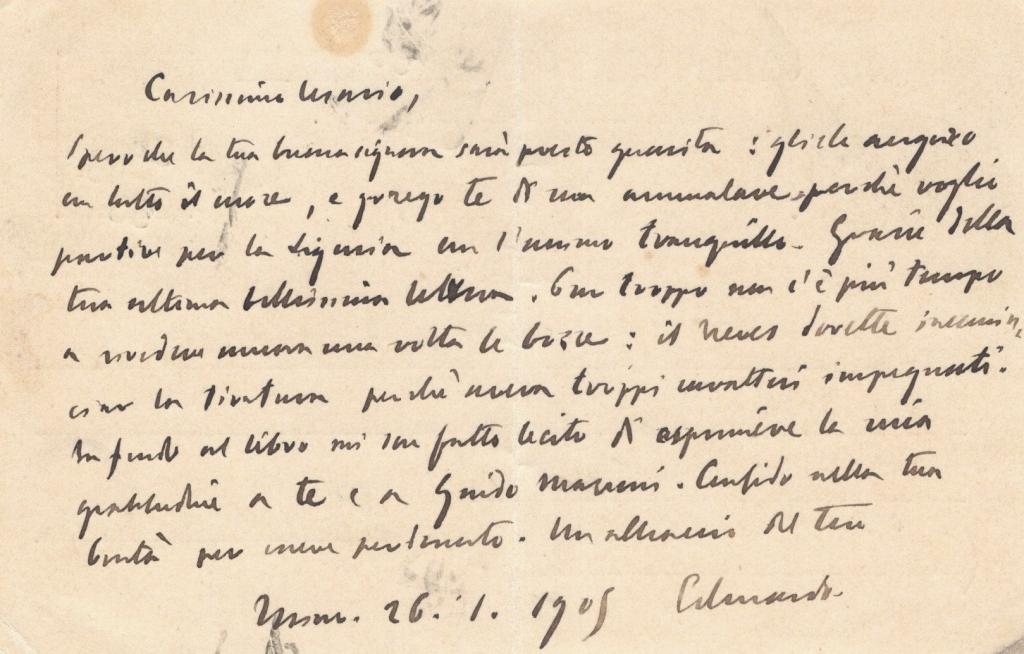 Carissimo Mario,
Spero che la tua buona signora sarà presto guarita : glielo auguro
con tutto il cuore, e prego te di non ammalare perchè voglio
partire per la Liguria con l'animo tranquillo. Grazie della
tua ultima bellissima lettera. Pur troppo non c'è più tempo
a rivedere ancora una volta le bozze : il Neves dovette incomin-
ciar la tiratura perchè aveva troppi caratteri impegnati.
In fondo al libro mi son fatto lecito di esprimere la mia
gratitudine a te e a Guido Mazzoni. Confido nella tua
bontà per essere perdonato. Un abbraccio del tuo
26. 1. 1905 Edmondo.